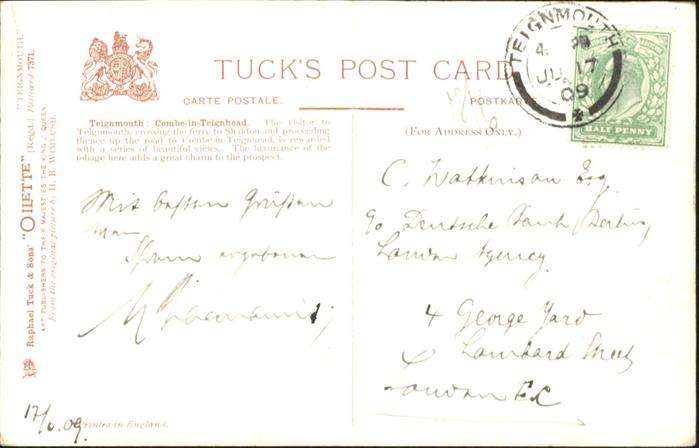 TUCK'S POST CARD
CARTE POSTALE.
POSTKARTE
(FOR ADDRESS ONLY.)
Teignmouth: Combe-in-Teignhead. The visitor to
Teignmouth, crossing the ferry to Shaldon and proceeding
thence up the road to Combe-in-Teignhead, is rewarded
with a series of beautiful views. The luxuriance of the
foliage here adds a great charm to the prospect.
Mit besten Grüßen
Ihnen ergebenen
17/6. 09.
Printed in England.
Raphael Tuck & Sons' "OILETTE" (Regd.) Postcard 7371. "TEIGNMOUTH."
ART PUBLISHERS TO THEIR MAJESTIES THE KING & QUEEN.
From the original picture by H. B. WIMBUSH.
TEIGNMOUTH
JU 17
09
HALF PENNY
C. Watkinson Esq
c/o Deutsche Bank (Berlin)
London Agency
4 George Yard
Lombard Street
London E.C